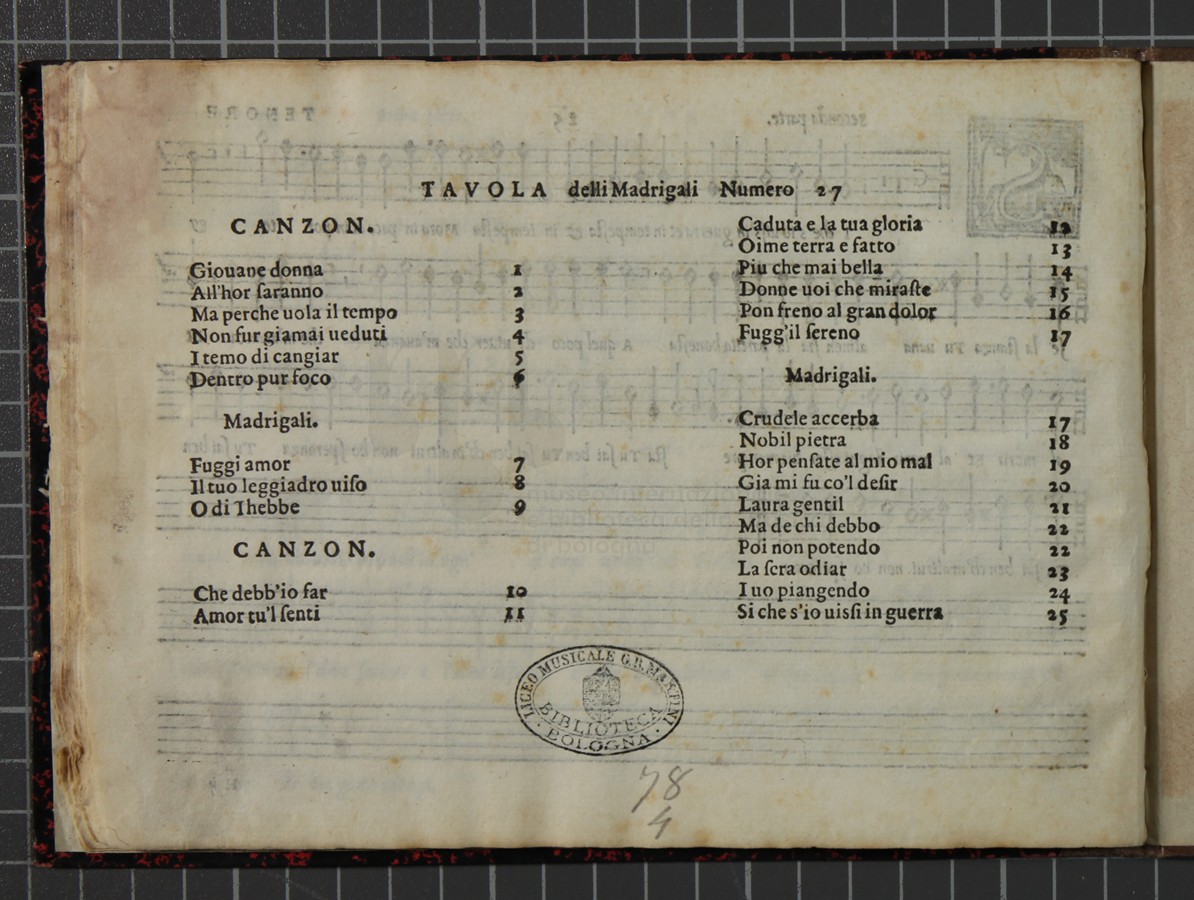 TAVOLA delli Madrigali Numero 27
CANZON.
Giouane donna 1
All'hor ſaranno 2
Ma perche uola il tempo 3
Non fur giamai ueduti 4
I temo di cangiar 5
Dentro pur foco 6
Madrigali.
Fuggi amor 7
Il tuo leggiadro uiſo 8
O di Ihebbe 9
CANZON.
Che debb'io far 10
Amor tu'l ſenti 11
Caduta e la tua gloria 12
Oime terra e fatto 13
Piu che mai bella 14
Donne uoi che miraſte 15
Pon freno al gran dolor 16
Fugg'il ſereno 17
Madrigali.
Crudele accerba 17
Nobil pietra 18
Hor penſate al mio mal 19
Gia mi fu co'l deſir 20
Laura gentil 21
Ma de chi debbo 22
Poi non potendo 22
La ſera odiar 23
I uo piangendo 24
Si che s'io uiſſi in guerra 25
LICEO MUSICALE G.B. MARTINI
BIBLIOTECA
BOLOGNA
78
4